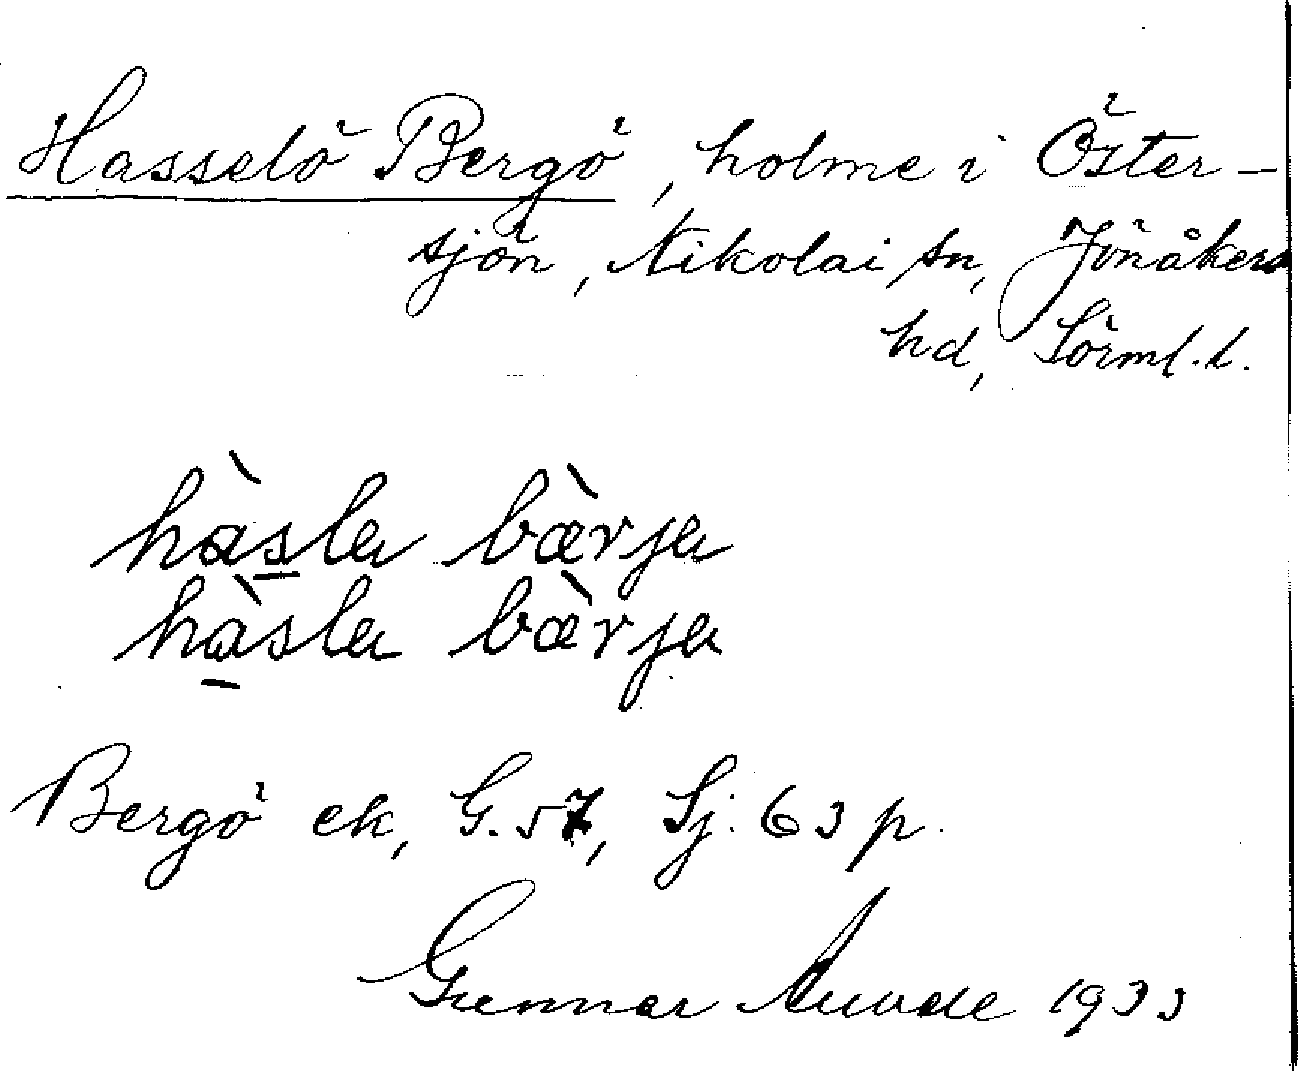 Hasselö Bergö, holme i Öster-
sjön, Nikolai sn, Jönåkers
hd, Sörml. l.
hàsla bærja
hàsla bærja
Bergö ek, G. 57, Sj. 63 p.
Gunnar 1933